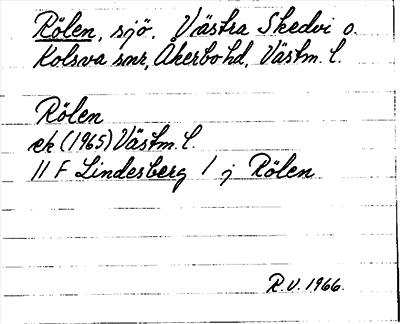 Rölen, sjö. Västra Skedvi o.
Kolsva snr, Åkerbo hd, Västm. l.
Rölen
ek (1965) Västm. l.
11 F Lindesberg 1 j Rölen
R.V. 1966.